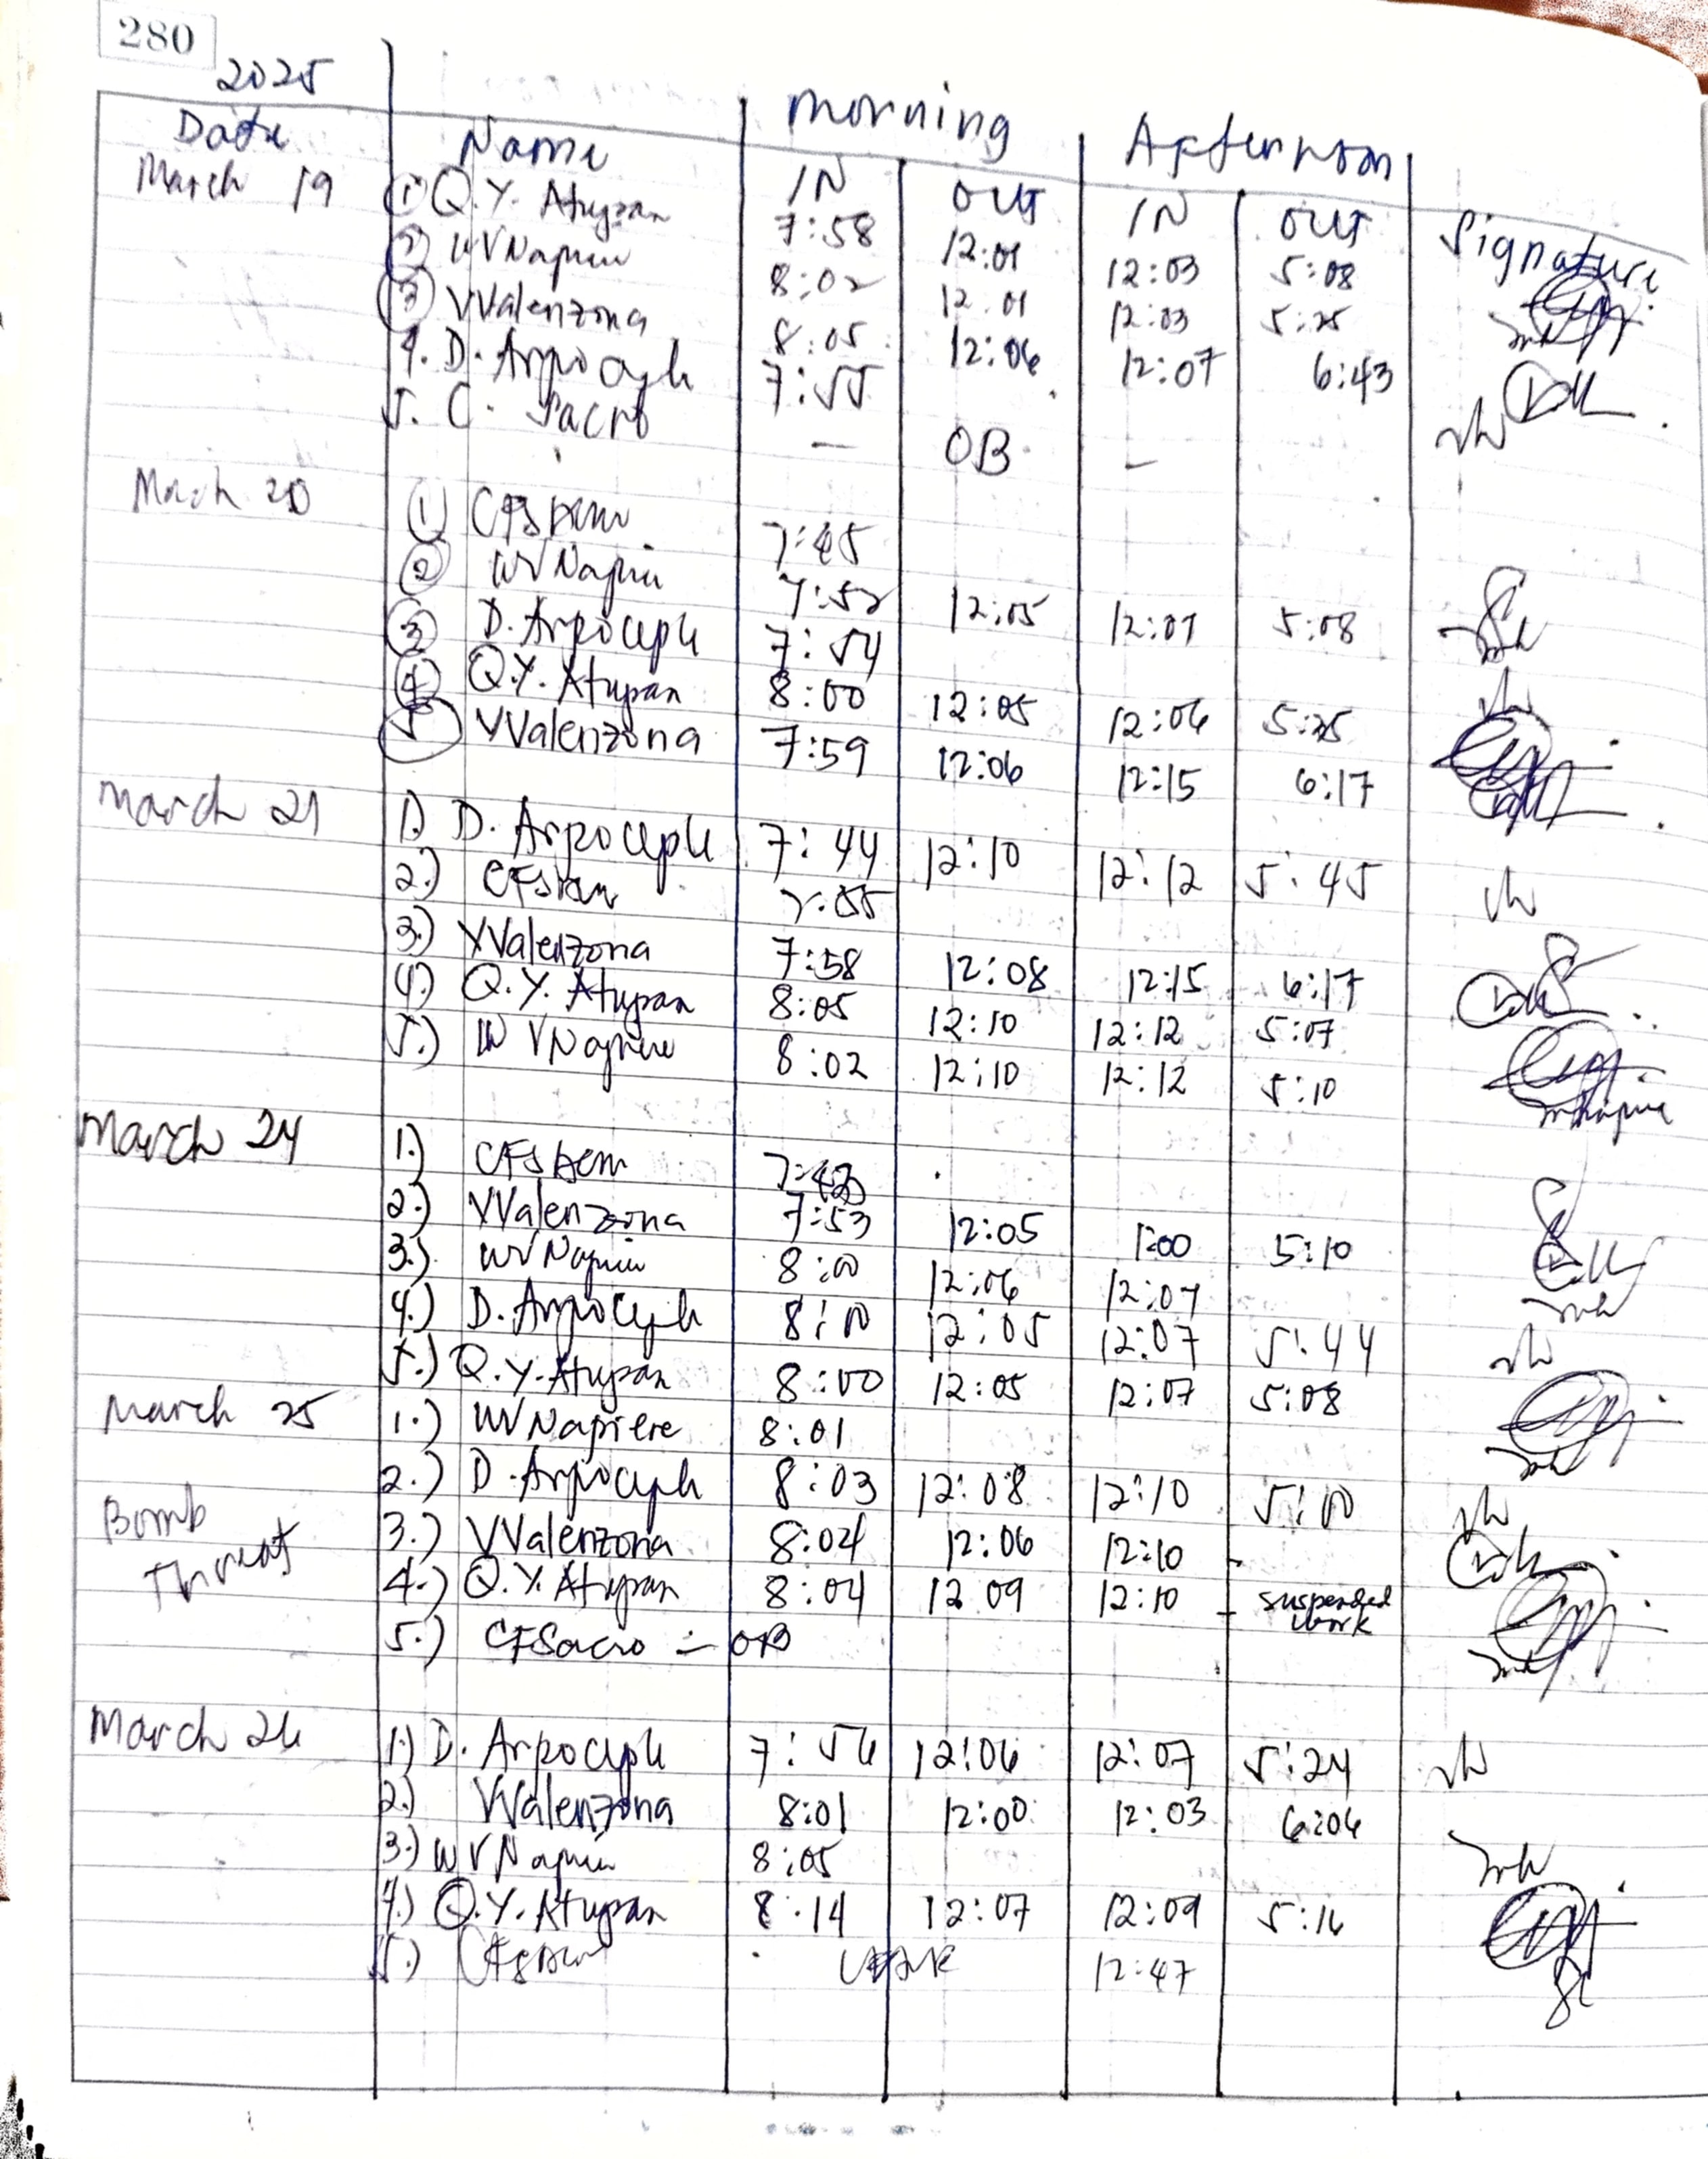 280
2025
Date Name morning Afternoon
IN OUT IN OUT Signature
March 19 1 Q.Y. Atupan 7:58 12:01 12:03 5:08
2 WVNapiere 8:02 12:01 12:03 5:25
3 VValenzona 8:05 12:06 12:07 6:43
4. D. Arpoceple 7:55
5. C. Sacro — OB —
March 20 1 CFSacro 7:45
2 WVNapiere 7:52 12:05 12:07 5:08
3 D. Arpoceple 7:54
4 Q.Y. Atupan 8:00 12:05 12:06 5:25
5 VValenzona 7:59 12:06 12:15 6:17
March 21 1) D. Arpoceple 7:44 12:10 12:12 5:45
2.) CFSacro 7:55
3.) VValenzona 7:58 12:08 12:15 6:17
4.) Q.Y. Atupan 8:05 12:10 12:12 5:07
5.) WVNapiere 8:02 12:10 12:12 5:10
March 24 1.) CFSacro
2.) VValenzona 7:53 12:05 1:00 5:10
3.) WVNapiere 8:00 12:06 12:07
4.) D. Arpoceple 8:00 12:05 12:07 5:44
5.) Q.Y. Atupan 8:00 12:05 12:07 5:08
March 25 1.) WVNapiere 8:01
2.) D. Arpoceple 8:03 12:08 12:10 5:00
Bomb Threat 3.) VValenzona 8:04 12:06 12:10 -
4.) Q.Y. Atupan 8:04 12 09 12:10 - suspended work
5.) CFSacro - OB
March 26 1.) D. Arpoceple 7:56 12:06 12:07 5:24
2.) VValenzona 8:01 12:00 12:03 6:06
3.) WVNapiere 8:05
4.) Q.Y. Atupan 8:14 12:07 12:09 5:16
5.) CFSacro 12:47